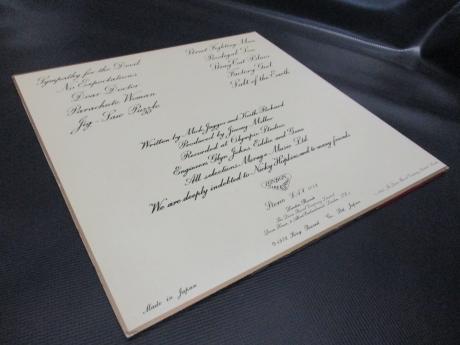 Sympathy for the Devil
No Expectations
Dear Doctor
Parachute Woman
Jig-Saw Puzzle
Street Fighting Man
Prodigal Son
Stray Cat Blues
Factory Girl
Salt of the Earth
Written by Mick Jagger and Keith Richard
Produced by Jimmy Miller
Recorded at Olympic Studios
Engineers Glyn Johns, Eddie and Gene
All selections Mirage Music Ltd.
We are deeply indebted to Nicky Hopkins and to many friends
LONDON
Stereo
London Records
King Record Co. Ltd. Japan
Made in Japan